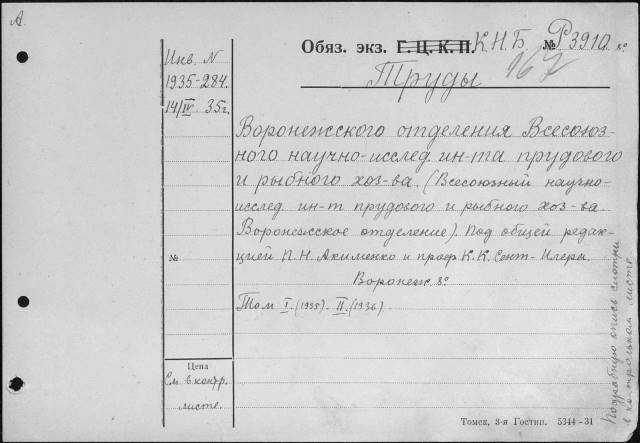 А.
Обяз. экз. Г. Ц. К. П. К.Н.Б. № Р3910 8°
167
Инв. N
1935-284.
14/IV 35г.
Труды
Воронежского отделения Всесоюз-
ного научно-исслед. ин-та прудового
и рыбного хоз-ва. (Всесоюзный научно-
исслед. ин-т прудового и рыбного хоз-ва
Воронежское отделение). Под общей редак-
цией П.Н. Акименко и проф. К.К. Сент-Илера.
№
Воронеж 8°
Том I. (1935). II. (1936)
Цена
См. в контр.
листе.
Подробную опись смотри
в контрольном листе
Томск, 3-я Гостип. 5344-31